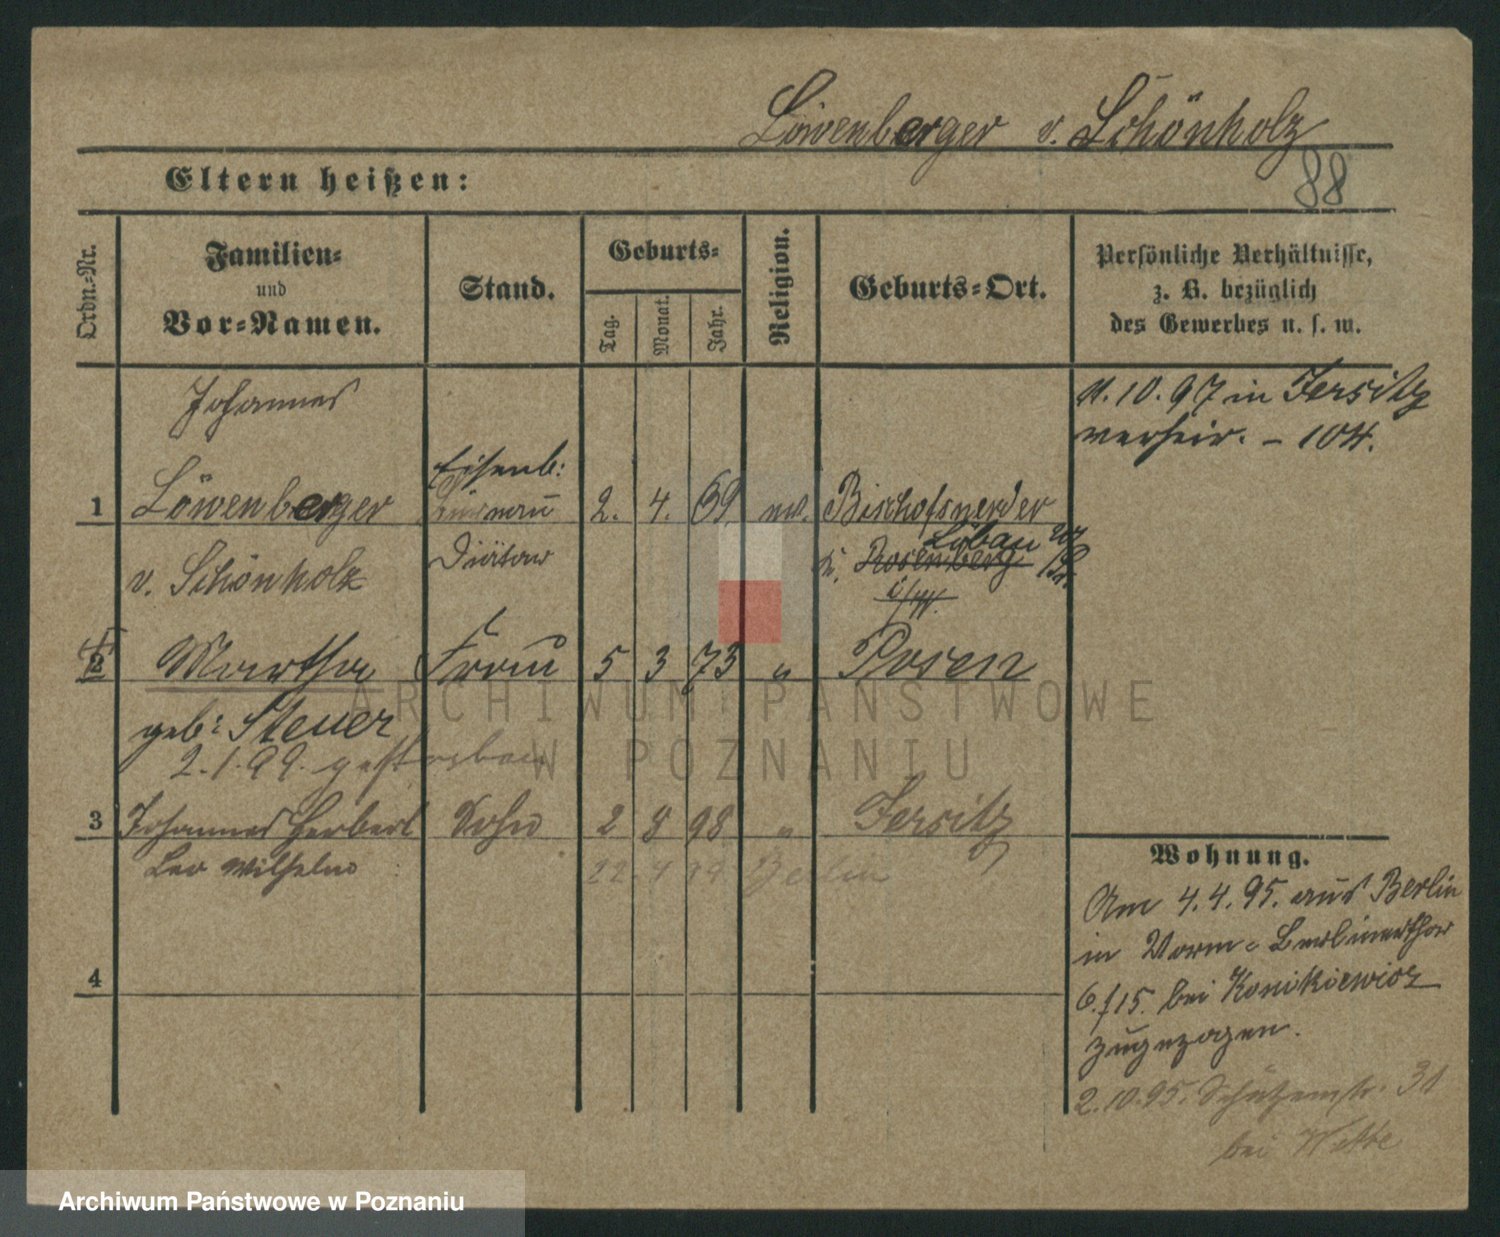 Löwenberger v. Schönholz
88
Eltern heißen:
Ordn.-Nr.
Familien-
und
Vor-Namen.
Stand.
Geburts-
Tag.
Monat.
Jahr.
Religion.
Geburts-Ort.
Persönliche Verhältnisse,
z. B. bezüglich
des Gewerbes u. s. w.
Johannes
11. 10. 97 in Jersitz
verheir. – 104.
Eisenb:
1 Löwenberger 2. 4. 69. ev. Bischofswerder
v. Schönholz Diätar
Löbau
Kr. Rosenberg
i/W.
2 Martha Frau 5 3 73 " Posen
geb: Steuer
2.1.99. gestorben
3 Johannes Herbert Sohn 2 8 98 " Jersitz
Leo Wilhelm
22. 4 99 Berlin
4
Wohnung.
Am 4.4.95. aus Berlin
in Vorm. Berlinerthor
6./15. bei Konikiewicz
zugezogen.
2.10.95. Schützenstr. 31
bei Witte
ARCHIWUM PAŃSTWOWE
W POZNANIU
Archiwum Państwowe w Poznaniu